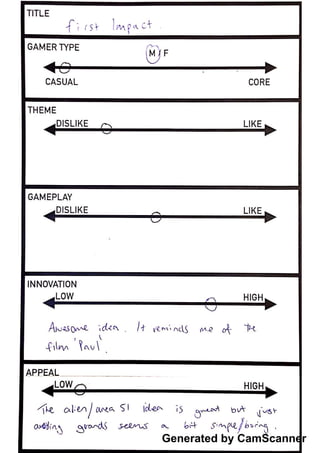 TITLE
first Impact.
GAMER TYPE
M / F
CASUAL CORE
THEME
DISLIKE LIKE
GAMEPLAY
DISLIKE LIKE
INNOVATION
LOW HIGH
Awesome idea. It reminds me of the
film 'Paul'.
APPEAL
LOW HIGH
The alien/area 51 idea is great but just
avoiding guards seems a bit simple/boring.
Generated by CamScanner